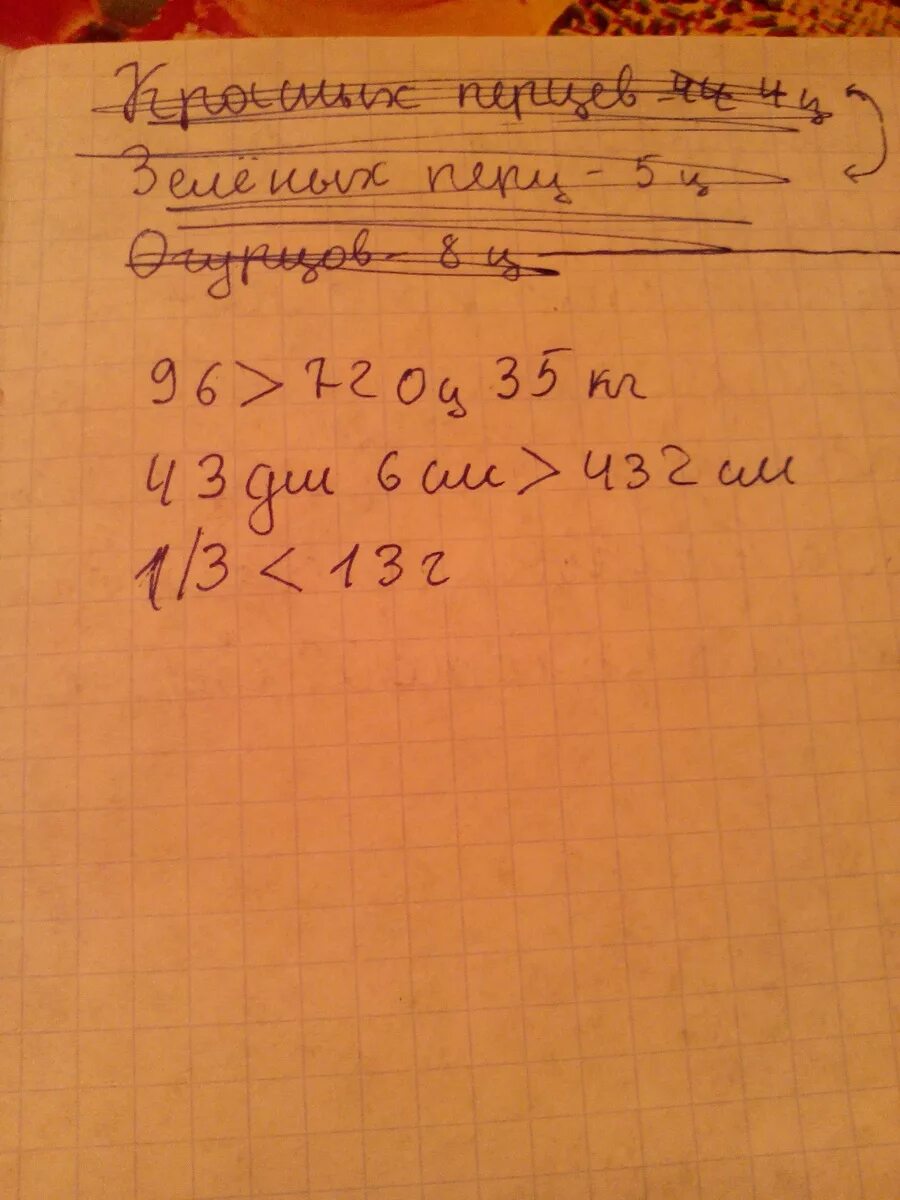 Красных перцев - 4ц 4 ц
Зелёных перц - 5 ц
Огурцов - 8 ц
96 > 720 ц 35 кг
43 дм 6 см > 432 см
1/3 < 13 г